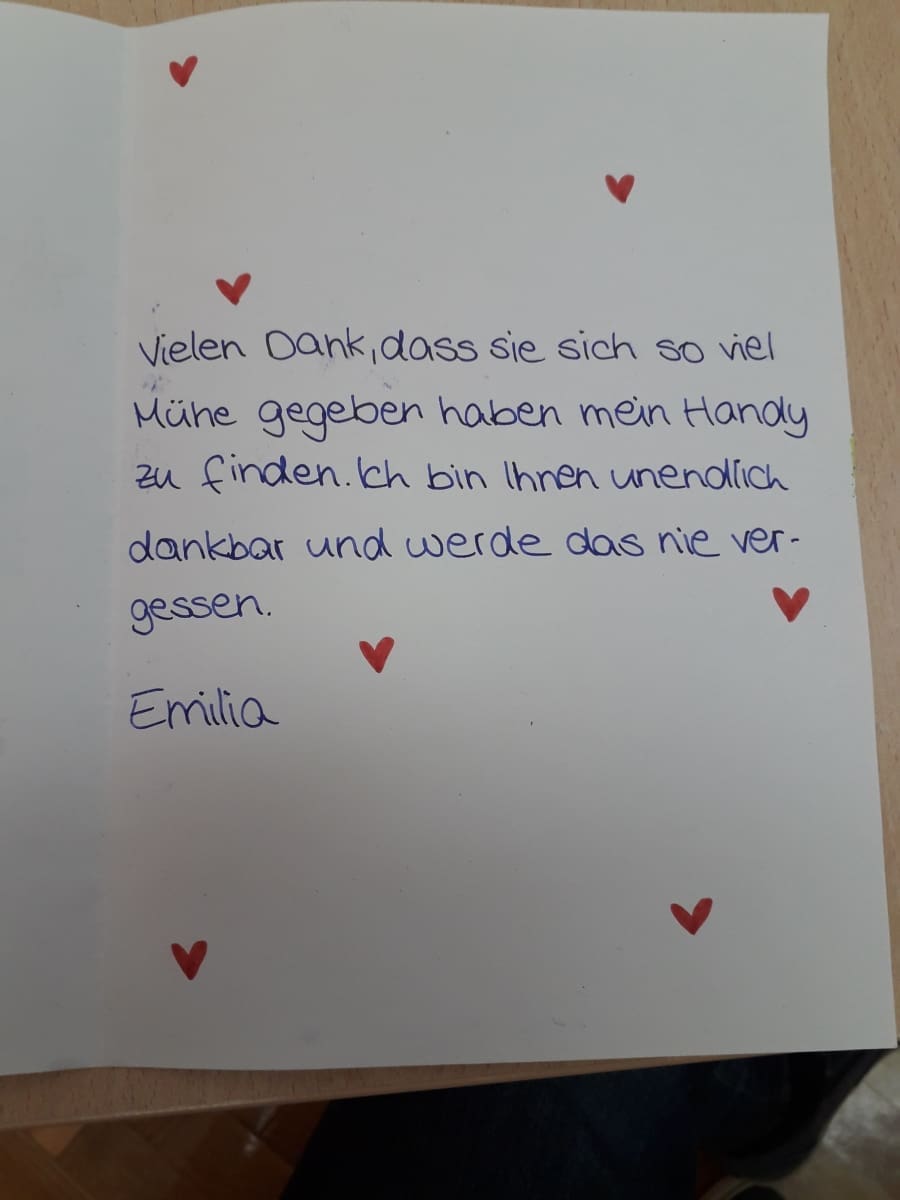 Vielen Dank, dass sie sich so viel
Mühe gegeben haben mein Handy
zu finden. Ich bin Ihnen unendlich
dankbar und werde das nie ver-
gessen.
Emilia